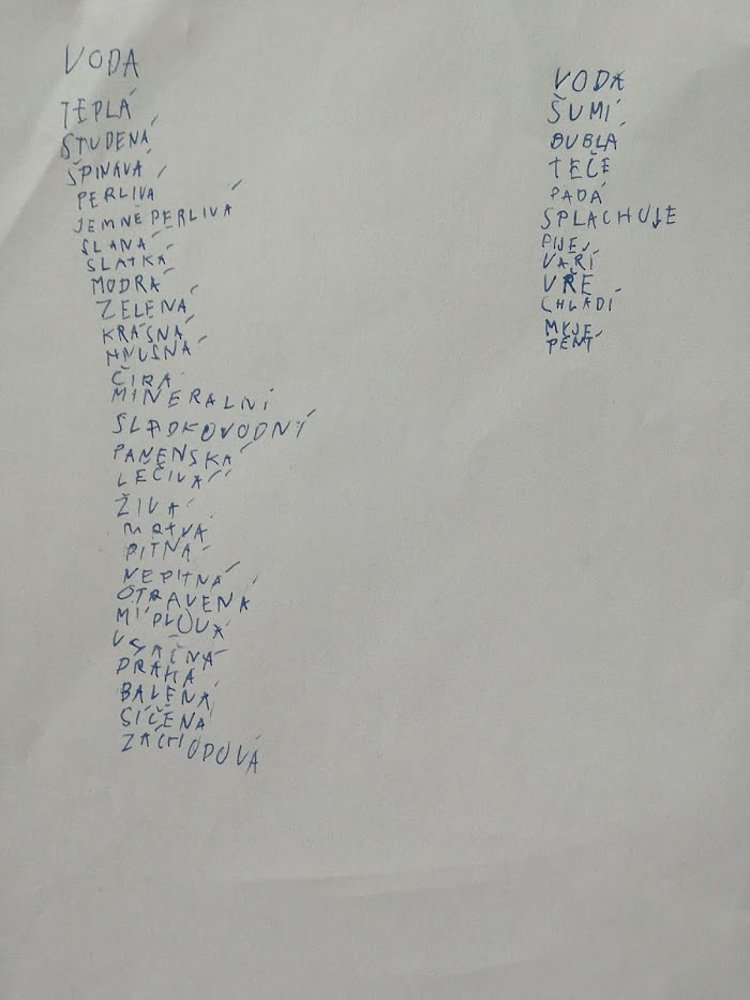 VODA
TEPLÁ
STUDENÁ
ŠPINAVÁ
PERLIVÁ
JEMNĚPERLIVÁ
SLANÁ
SLATKÁ
MODRÁ
ZELENÁ
KRÁSNÁ
HNUSNÁ
ČIRÁ
MINERALNÍ
SLADKOVODNÍ
PANENSKÁ
LEČIVÁ
ŽIVÁ
MRTVÁ
PITNÁ
NEPITNÁ
OTRÁVENÁ
DRAHÁ
BALENÁ
ZÁCHODOVÁ
VODA
ŠUMÍ
BUBLÁ
TEČE
PADÁ
SPLACHUJE
PIJE
VAŘÍ
VŘE
CHLADÍ
MYJE
PĚNÍ